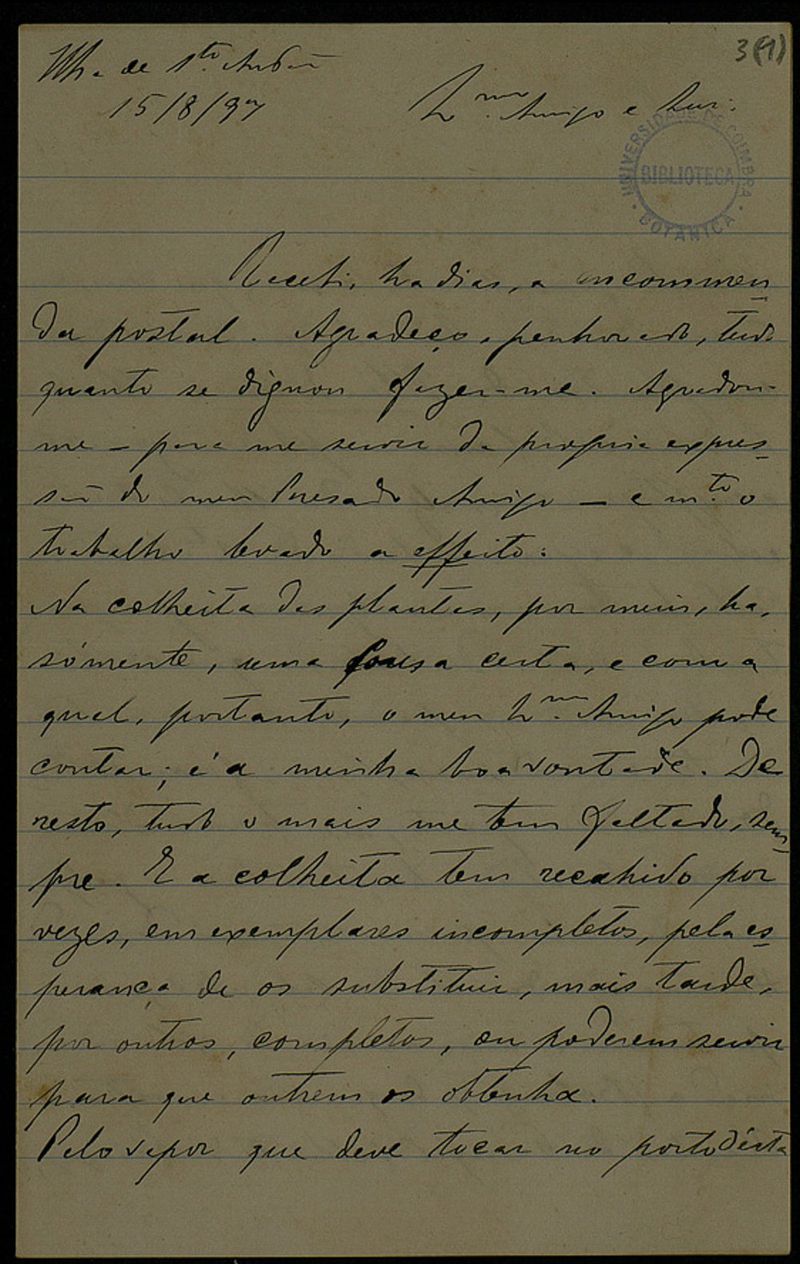 3(1)
Ilha de Sto. Antão
15/8/97
Exmo. Amigo e Snr.:
UNIVERSIDADE DE COIMBRA
BIBLIOTECA
BOTANICA
Recebi, ha dias, a encommen
da postal. Agradeço, penhorado, tudo
quanto se dignou fazer-me. Agradou-
me — para me servir da propria expres-
são do meu Presado Amigo — e mto. o
trabalho levado a effeito:
Na colheita das plantas, por mim, ha,
sómente, uma cousa certa, e com a
qual, portanto, o meu Exmo. Amigo pode
contar; é a minha boa vontade. De
resto, tudo o mais me tem faltado, sem-
pre. E a colheita tem recahido por
vezes, em exemplares incompletos, pela es-
perança de os substituir, mais tarde,
por outros, completos, ou poderem servir
para que outrem os obtenha.
Pelo vapor que deve tocar no porto d'ésta